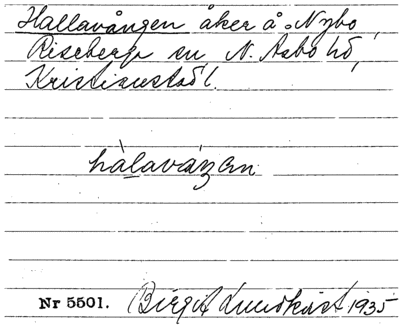 Hallavången åker å Nybo,
Riseberga sn, N. Åsbo hd,
Kristianstads l.
hàlaváŋen
Nr 5501. Birgit Lundkvist 1935